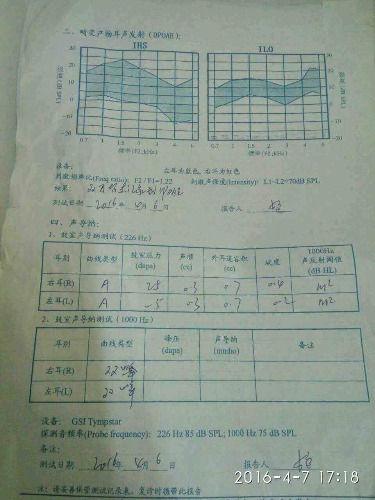 三、畸变产物耳声发射 (DPOAE):
IHS ILO
0.7 1 2 3 4 5 6 0.7 1 2 3 4 5 6
频率(F2,kHz) 频率(F2,kHz)
设备: 左耳为蓝色, 右耳为红色
刺激频率比(Freq ratio): F2/F1=1.22 刺激声强度(Intensity): L1=L2=70dB SPL
结果:
测试日期 2016年 4月 6日 报告人
四、声导纳:
1、鼓室声导纳测试 (226 Hz)
耳别 曲线类型 鼓室压力 (dapa) 声顺 (cc) 外耳道容积 (cc) 梯度 1000Hz 声反射阈值 (dB HL)
右耳(R) A 25 0.3 0.7 0.4
左耳(L) A -5 0.3 0.7
2、鼓室声导纳测试 (1000 Hz)
耳别 曲线类型 峰压 (dapa) 声导纳 (mmho) 备注
右耳(R)
左耳(L)
设备: GSI Tympstar
探测音频率(Probe frequency): 226 Hz 85 dB SPL; 1000 Hz 75 dB SPL
备注:
测试日期 2016年 4月 6日 报告人
注: 请妥善保管测试记录表, 复诊时携带此报告
2016-4-7 17:18